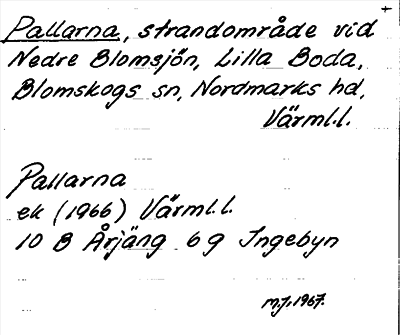 +
Pallarna, strandområde vid
Nedre Blomsjön, Lilla Boda,
Blomskogs sn, Nordmarks hd,
Värml.l.
Pallarna
ek (1966) Värml.l.
10 B Årjäng 6g Ingebyn
M.J. 1967.